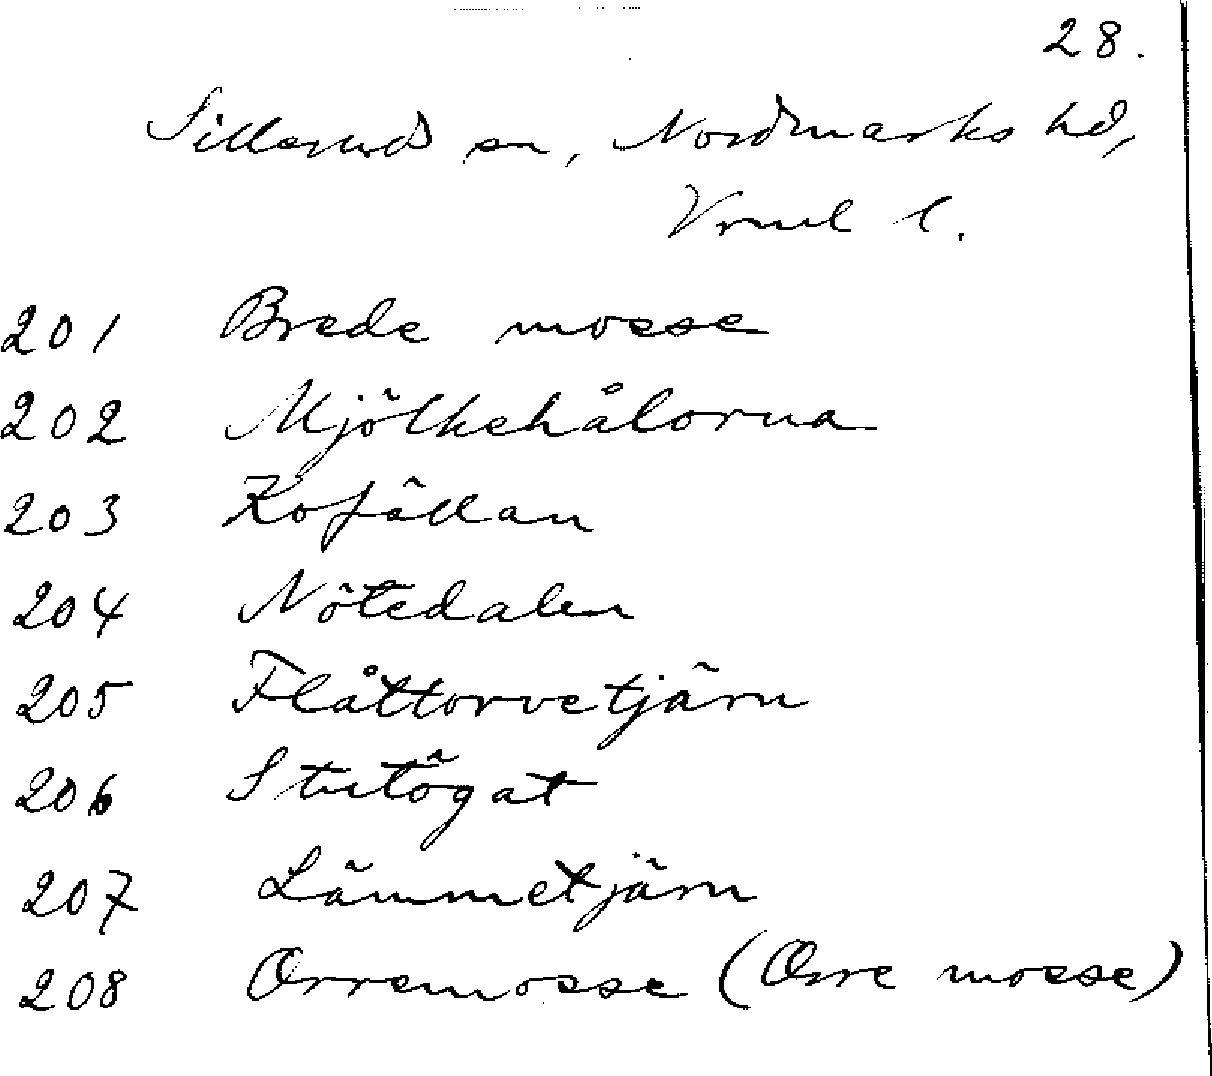 28.
Sillerud sn, Nordmarks hd,
Vrml l.
201 Brede mosse
202 Mjölkehålorna
203 Kofällan
204 Nötedalen
205 Flåttorvetjärn
206 Stutögat
207 Lämmetjärn
208 Orremosse (Orre mosse)